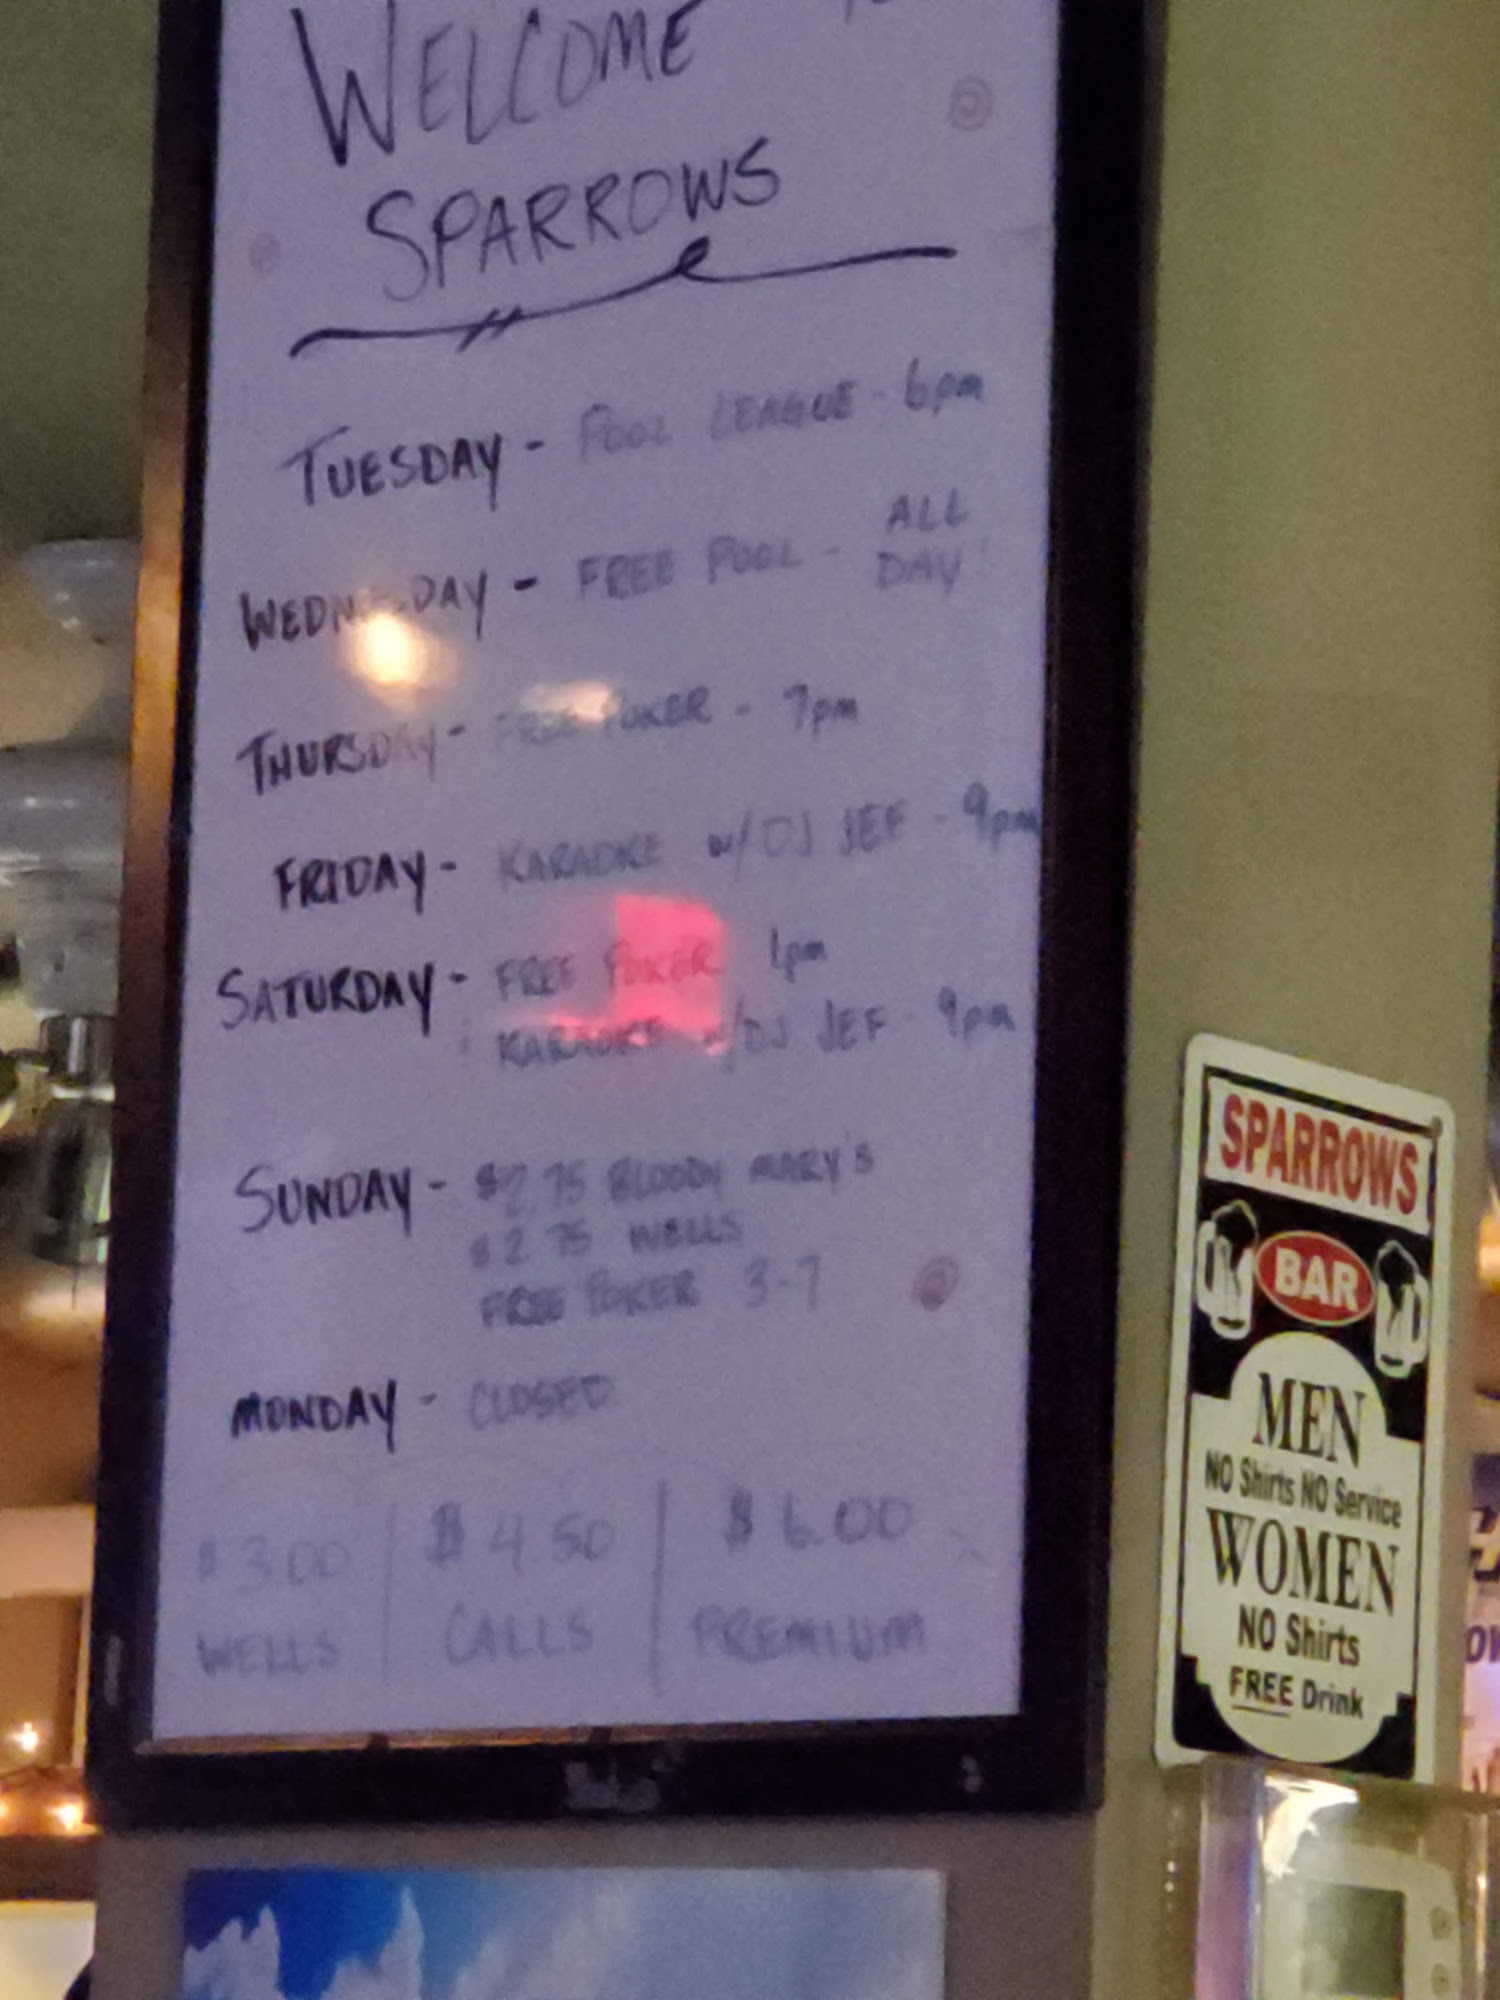 WELCOME
SPARROWS
TUESDAY - POOL LEAGUE - 6pm
WEDNESDAY - FREE POOL - ALL DAY!
THURSDAY - FREE POKER - 7pm
FRIDAY - KARAOKE w/DJ JEF - 9pm
SATURDAY - FREE POKER 1pm
KARAOKE w/DJ JEF - 9pm
SUNDAY - $2.75 BLOODY MARY'S
$2.75 WELLS
FREE POKER 3-7
MONDAY - CLOSED
$3.00 $4.50 $6.00
WELLS CALLS PREMIUM
SPARROWS
BAR
MEN
NO Shirts NO Service
WOMEN
NO Shirts
FREE Drink